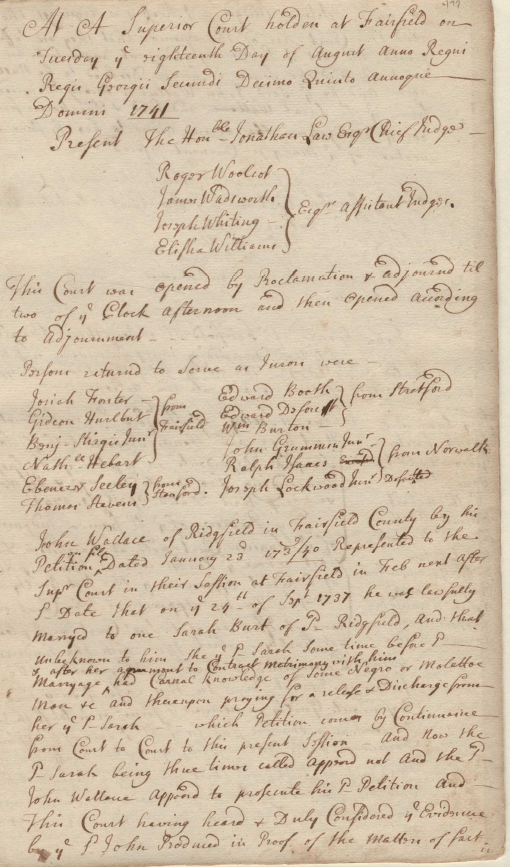 At A Superior Court holden at Fairfield on
Tuesday ye eighteenth Day of August Anno Regni
Regis Georgii Secundi Decimo Quinto Annoque
Domini 1741
Present The Honble Jonathan Law Esqr Chief Judge
Roger Woolcot
James Wadsworth
Joseph Whiting
Elisha Williams
Esqrs Assistant Judges.
This Court was opened by Proclamation & adjournd til
two of ye Clock afternoon and then opened according
to adjournment
Persons returned to Serve as Jurors were
Josiah Foster
Gideon Hurlbut
Benj Junr
Nathll Hebart
from Fairfield
Ebenezer Seeley
Thomas Stevens
from Stanford.
Edward Booth
Edward
Wm Burton
from Stratford
John Grumman Junr
Ralph Isaacs
Joseph Lockwood Junr
from Norwalk
John Wallace of Ridgfield in Fairfield County by his
Petition Dated January 2d 1739/40 Represented to the
Supr Court in their Session at Fairfield in Feb next after
sd Date that on ye 24th of Sepr 1737 he was lawfully
marryed to one Sarah Burt of sd Ridgfield, and that
unbeknown to him She ye sd Sarah Some time before sd
& after her agreement to Contract matrimony with him
Marryage had Carnal knowledge of Some Negro or Molattoe
man &c and thereupon praying for a release & Discharge from
her ye sd Sarah which Petition comes by Continuance
from Court to Court to this present Session And now the
sd Sarah being three times called appeard not And the sd
John Wallace appeard to prosecute his sd Petition And
This Court having heard & Duly Considered ye Evidence
by ye sd John Produced in Proof of the matters of fact
in